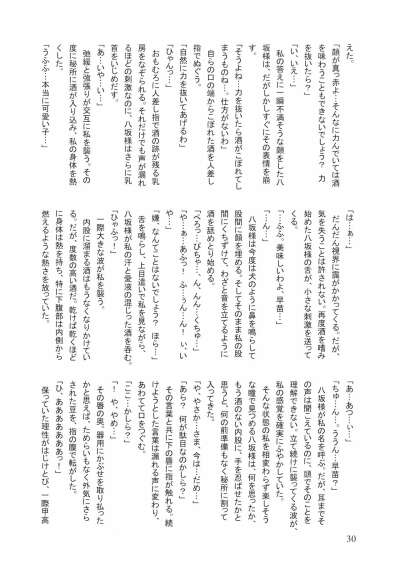 えた。
「顔が真っ赤よ…そんなに力んでいては酒
を味わうこともできないでしょう？　力
を抜いたら？」
「い、いえ…」
　私の答えに一瞬不満そうな顔をした八
坂様は、だがしかしすぐにその表情を崩
す。
「そうよね…力を抜いたら酒がこぼれてし
まうものね…仕方がないわ」
　自らの口の端からこぼれた酒を人差し
指でぬぐう。
「自然に力を抜いてあげるわ」
「ひゃんっ…」
　おもむろに人差し指で酒の跡が残る乳
房をなぞられる。それだけでも声が漏れ
るほどの刺激なのに、八坂様はさらに乳
首をいじめだす。
「あ…いや…」
　弛緩と強張りが交互に私を襲う。その
度に秘所に酒が入り込み、私の身体を熱
くした。
「うふふ…本当に可愛い子…」
「はぁ…」
　だんだん視界に靄がかかってくる。だが、
気を失うことは許されない。再度酒を嗜み
始めた八坂様の舌が、小さな刺激を送って
くる。
「…ふふ、美味しいわよ、早苗…」
「ん…」
　八坂様は今度は犬のように鼻を鳴らして
股間に顔を埋める。そしてそのまま私の股
間にくちづけて、わざと音を立てるように
酒を舐めとり始める。
「ぺろっ…ぴちゃ…、ん、んん…くちゅ…」
「や…ぁ、あふっ！　ふ…ぅん…ん！ぃ、い
や…」
「嫌、なんてことはないでしょう？　ほら…」
　舌を鳴らし、上目遣いで私を見ながら、
八坂様が私の汗と愛液の混じった酒を呑む。
「ひゃふっ！」
　一際大きな波が私を襲う。
　内股に溜まる酒はもうなくなりかけてい
る。だが、度数の高い酒だ。乾けば乾くほど
に身体は熱を持ち、特に下腹部は内側から
燃えるような熱さを放っていた。
「あ、あつ…い…」
「ちゅ…ん…、ううん…早苗？」
　八坂様が私の名を呼ぶ。だが、耳までそ
の声は聞こえているのに、頭でそのことを
理解できない。立て続けに襲ってくる波が、
私の感覚を確実にふやかしていた。
　そんな状態の私を相変わらず楽しそう
な瞳で見つめる八坂様は、何を思ったか、
もう酒のない内股に、手を忍ばせたかと
思うと、何の前準備もなく秘所に割って
入ってきた。
「や、やさか…さま、今は…だめ…」
「あら？　何が駄目なのかしら？」
　その言葉と共に下の唇に指が触れる。続
けようとした言葉は漏れる声に変わり、
あわてて口をつぐむ。
「ここ…かしら？」
「！　や、やめ…」
　その唇の奥、器用にかぶせを取り払った
かと思えば、ためらいもなく外気にさら
された豆を、指の腹で転がした。
「ひ、あああああああっ！」
　保っていた理性がはじけとび、一際甲高
30